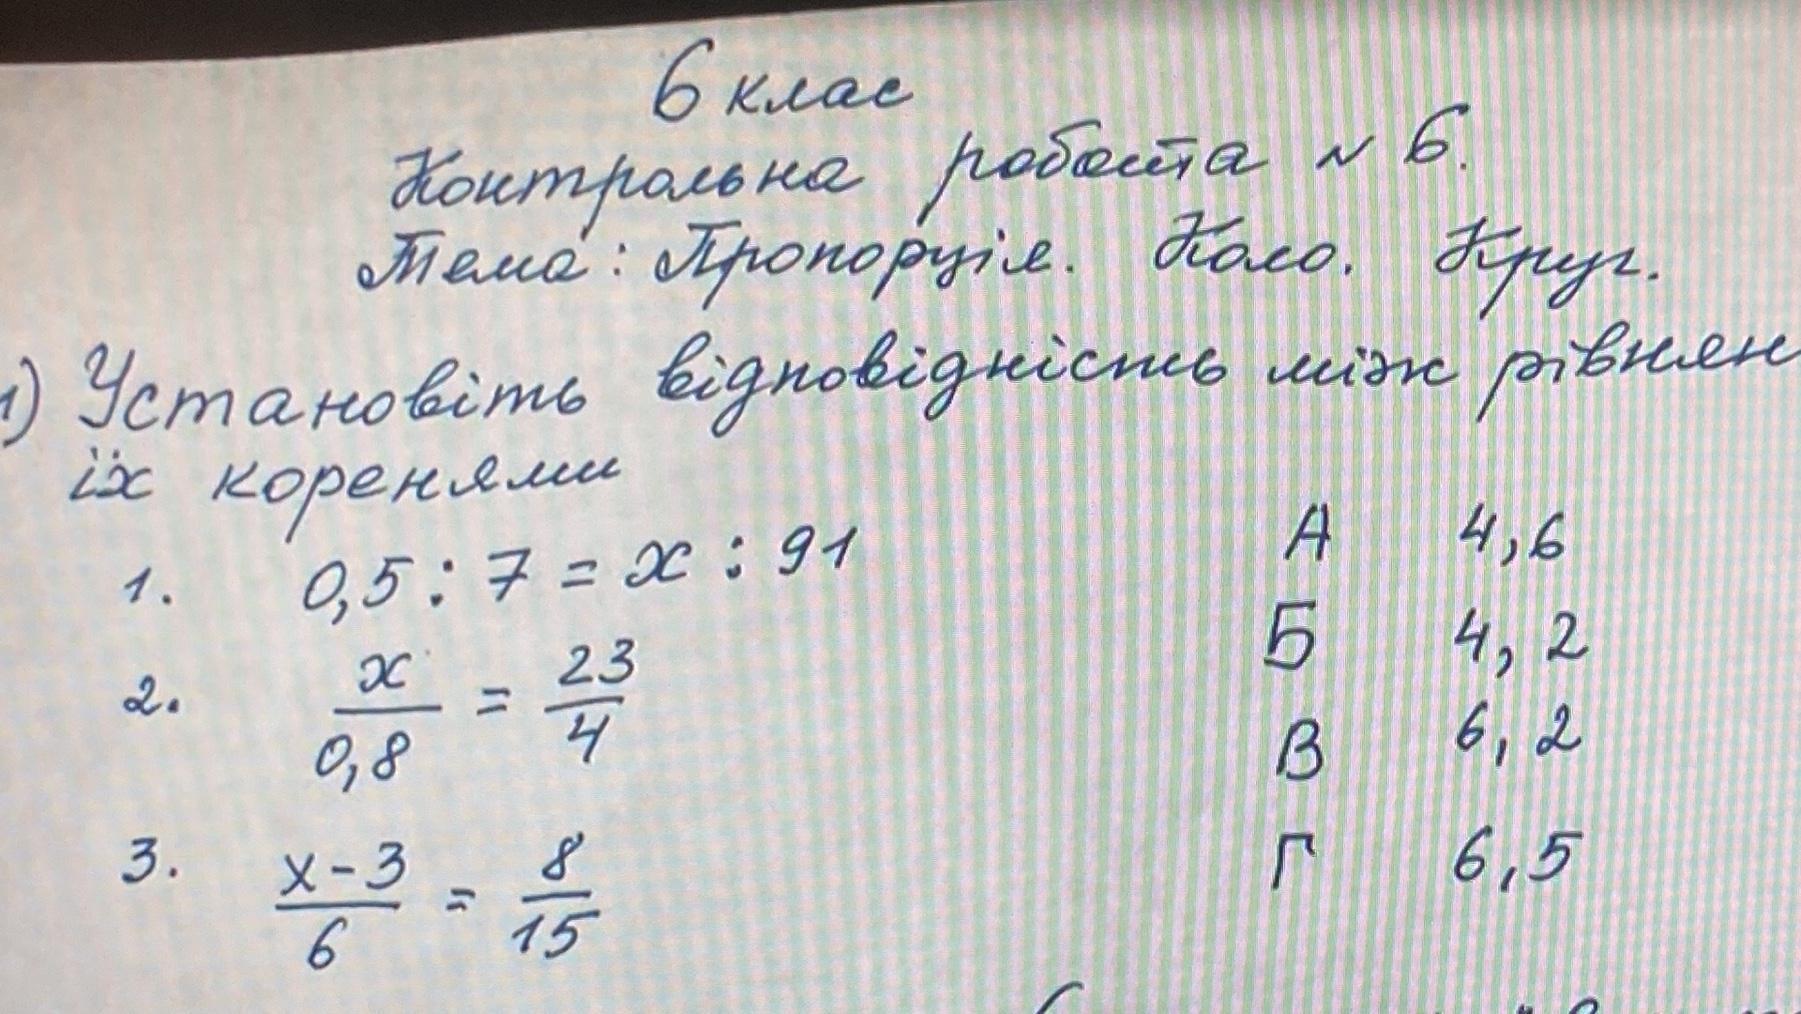 6 клас
Контрольна робота № 6.
Тема: Пропорція. Коло. Круг.
1) Установіть відповідність між рівнян
їх коренями
1. 0,5 : 7 = x : 91 А 4,6
2. x/0,8 = 23/4 Б 4,2
В 6,2
3. x-3/6 = 8/15 Г 6,5